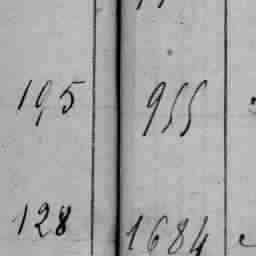 195 955
128 1684